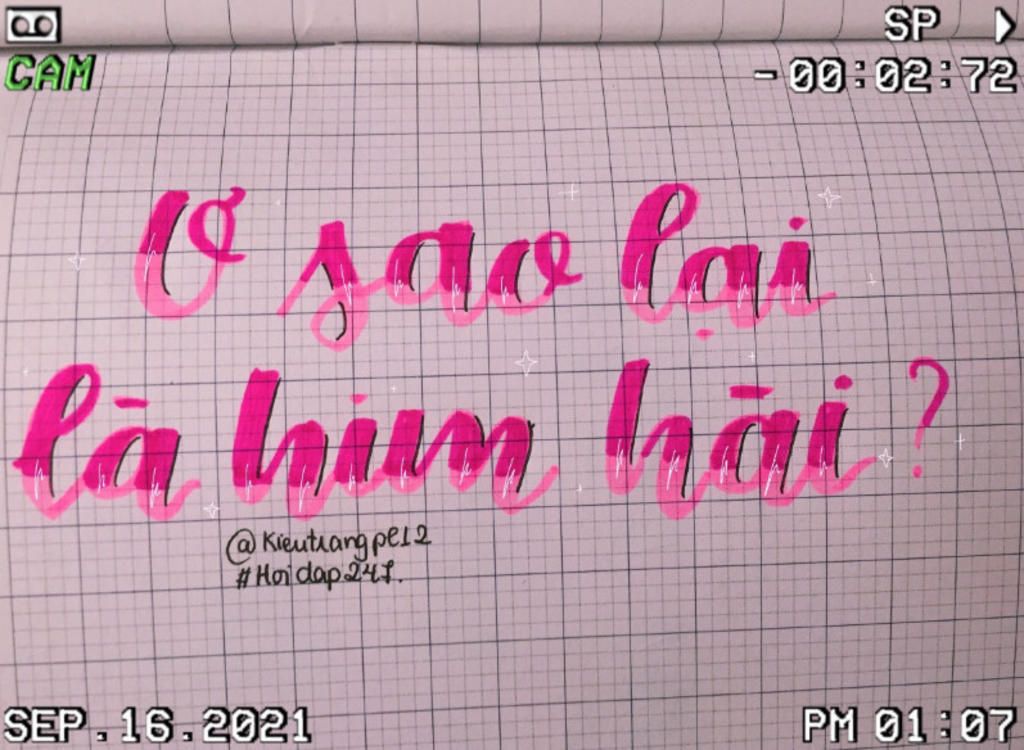 SP
CAM
-00:02:72
Ơ sao lại
là him hãi ?
@Kieutrangpl12
#Hoidap247.
SEP.16.2021
PM 01:07